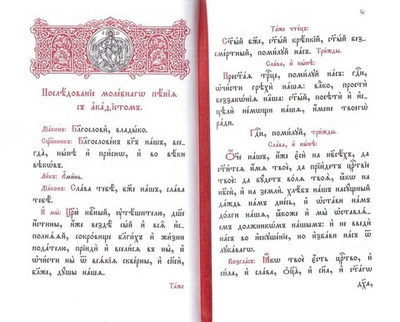 Послѣ́дованїе моле́бнагѡ пѣ́нїѧ
съ а҆ка́ѳїстомъ.
Дїа́конъ: Благословѝ, влады́ко.
Сщ҃е́нникъ: Благослове́нъ бг҃ъ на́шъ, все-
гда̀, ны́нѣ и҆ при́снѡ, и҆ во вѣ́ки
вѣкѡ́въ.
Ли́къ: А҆ми́нь.
Дїа́конъ: Сла́ва тебѣ̀, бж҃е на́шъ, сла́ва
тебѣ̀.
И҆ мы̀: Цр҃ю̀ нбⷭ҇ный, оу҆тѣ́шителю, дш҃е
и҆́стины, и҆́же вездѣ̀ сы́й и҆ всѧ̑ и҆с-
полнѧ́ѧй, сокро́вище благи́хъ и҆ жи́зни
пода́телю, прїидѝ и҆ всели́сѧ въ ны̀, и҆
ѡ҆чи́сти ны̀ ѿ всѧ́кїѧ скве́рны, и҆ сп҃сѝ,
бл҃же, дꙋ́шы на́шѧ.
Та́же
Та́же чте́цъ:
Ст҃ы́й бж҃е, ст҃ы́й крѣ́пкїй, ст҃ы́й без-
сме́ртный, поми́лꙋй на́съ. Три́жды.
Сла́ва, и҆ ны́нѣ:
Прест҃а́ѧ трⷪ҇це, поми́лꙋй на́съ: гдⷭ҇и,
ѡ҆чи́сти грѣхѝ на́шѧ: влⷣко, простѝ
беззакѡ́нїѧ на́ша: ст҃ы́й, посѣтѝ и҆ и҆с-
цѣлѝ не́мѡщи на́шѧ, и҆́мене твоегѡ̀
ра́ди.
Гдⷭ҇и, поми́лꙋй, три́жды.
Сла́ва, и҆ ны́нѣ:
Ѻ҆́ч҃е на́шъ, и҆́же є҆сѝ на нб҃сѣ́хъ, да
ст҃и́тсѧ и҆́мѧ твоѐ, да прїи́детъ црⷭ҇твїе
твоѐ: да бꙋ́детъ во́лѧ твоѧ̀, ꙗ҆́кѡ на
нб҃сѝ, и҆ на землѝ. хлѣ́бъ на́шъ насꙋ́щный
да́ждь на́мъ дне́сь, и҆ ѡ҆ста́ви на́мъ
до́лги на́шѧ, ꙗ҆́коже и҆ мы̀ ѡ҆ставлѧ́-
емъ должникѡ́мъ на́шымъ: и҆ не введѝ
на́съ во и҆скꙋше́нїе, но и҆зба́ви на́съ ѿ
лꙋка́вагѡ.
Возгла́съ: Ꙗ҆́кѡ твоѐ є҆́сть црⷭ҇тво, и҆
си́ла, и҆ сла́ва, ѻ҆ц҃а̀, и҆ сн҃а, и҆ ст҃а́гѡ
дх҃а,